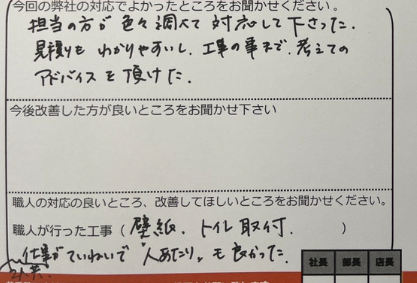 今回の弊社の対応でよかったところをお聞かせください。
担当の方が色々調べて対応して下さった。
見積りもわかりやすいし、工事の事まで、考えての
アドバイスを頂けた。
今後改善した方が良いところをお聞かせ下さい
職人の対応の良いところ、改善してほしいところをお聞かせください。
職人が行った工事（壁紙、トイレ取付．）
仕事がていねいで〝人あたり〟も良かった．
2人共．
社長 部長 店長